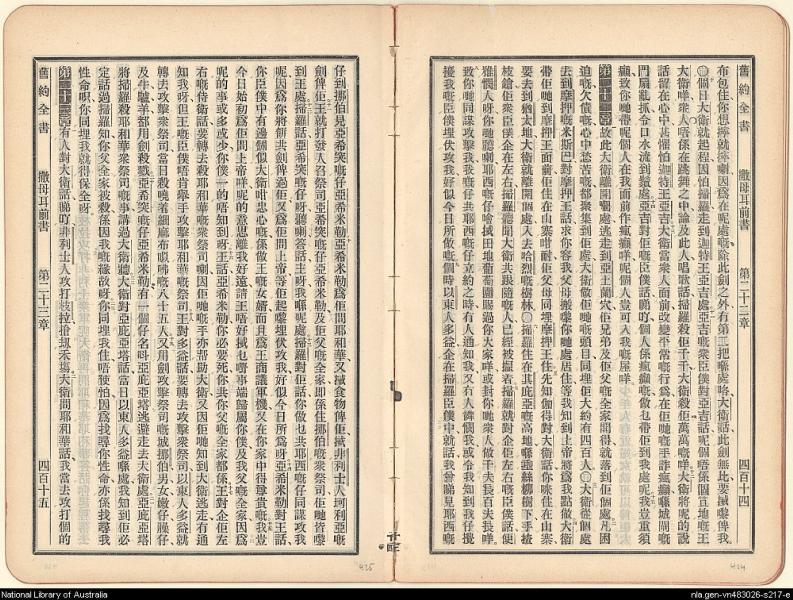 舊約全書 撒母耳前書 第二十二章 四百十四
布包住你想擰就擰喇因爲在呢處嘅除此劍之外有第二把喺處咯大衛話此劍無比要搣嚟俾我
個日大衛就起程因怕掃羅走到迦特王亞吉處亞吉嘅衆臣僕對亞吉話呢個唔係個宜地嘅王
大衛咩衆人唔係在跳舞之中論及此人唱歌話掃羅殺佢千千大衛殺佢萬萬嘅咩大衛將呢的說
話留在心中甚懼怕迦特王亞吉大衛當衆人面前改變平常嘅行爲在佢哋嘅手詐癲癇喺城閘嘅
門扇亂抓令口水流到鬚處亞吉對佢哋嘅臣僕話睇吖個人係癲癇嘅做乜帶佢到我處呢我豈重須
癲致你哋帶呢個人在我面前作癲癇咩呢個人豈可入我嘅屋咩
第二十二章 故此大衛離開嗰處逃走到亞土蘭穴佢兄弟及佢父嘅全家聞得就落到佢個處凡困
迫嘅欠債嘅心中愁苦嘅都聚集到佢處大衛做佢哋嘅頭目同埋佢大約有四百人 大衛從個處
去到摩押嘅米斯巴對摩押王話求你容我父母搬嚟你哋處居住等我知到上帝將爲我點做大衛
帶佢哋到摩押王面前佢住在山寨咁耐佢父母同埋摩押王住先知伽得對大衛話你咪住在山寨
要去到猶太地大衛就離開個處入去哈烈嘅樹林 掃羅住在其庇亞嘅高地喺垂絲柳樹下手揸
枝鎗佢衆臣僕企在左右掃羅聽聞大衛共跟隨嘅人已經被搵着掃羅就對企佢左右嘅臣僕話便
雅憫人呀你哋聽喇耶西嘅仔噲搣田地葡萄園賜過你大家咩或封你哋衆人做千夫長百夫長咩
致你哋同謀攻擊我我嘅仔共耶西嘅仔立約之時冇人通知我又冇人爲我憐憫我或令我知到我仔攪
擾我嘅臣僕埋伏攻我好似今日所做嘅個時以東人多益企在掃羅臣僕中就話我曾睇見耶西嘅
舊約全書 撒母耳前書 第二十三章 四百十五
仔到挪伯見亞希突嘅仔亞希米勒亞希米勒爲佢問耶和華又搣食物俾佢搣非利士人哥利亞嘅
劍俾佢王就打發人召祭司亞希突嘅仔亞希米勒及佢父嘅全家即係住挪伯嘅衆祭司佢哋皆嚟
到王處掃羅話亞希突嘅仔呀聽喇答話主呀我喺呢處掃羅對佢話你做乜共耶西嘅仔同謀攻我
呢因爲你將餅共劍俾過佢又爲佢問上帝等佢起嚟埋伏攻我好似今日所爲呀亞希米勒對王話
你臣僕中有邊個似大衛咁忠心嘅係做王嘅女婿而且爲王商議軍機又在你家中得尊貴嘅我豈
今日始嚟爲佢問上帝咩呢的意思離我好遠請王唔好搣乜嘢事端歸屬你僕及我父嘅全家因爲
呢的事或多或少你僕一的唔知到呀王話亞希米勒你必要死你共你父嘅全家都係王對企佢左
右嘅侍衛話要轉去殺耶和華嘅衆祭司喇因佢哋嘅手亦幫助大衛又因佢哋知到大衛逃走冇通
知我呀但王嘅臣僕唔肯舉手攻擊耶和華嘅祭司王對多益話要轉去攻擊衆祭司以東人多益就
轉去攻擊衆祭司當日殺曉着細麻布以弗嘅八十五人又用劍攻擊祭司嘅城挪伯男女細仔臊仔
及牛驢羊都用劍殺嘥亞希突嘅仔亞希米勒有一個仔名呌亞庇亞塔逃避走去大衛處亞庇亞塔
將掃羅殺耶和華衆祭司嘅事講過大衛聽大衛對亞庇亞塔話當日以東人多益喺處我知到佢必
定話過掃羅知你父全家被殺係因我嘅緣故呀你同埋我住唔使怕因爲找尋你性命亦係找尋我
性命嘅你同埋我就得保全呀
第二十三章 有人對大衛話睇吖非利士人攻打枝拉搶刧禾場大衛問耶和華話我當去攻打個的